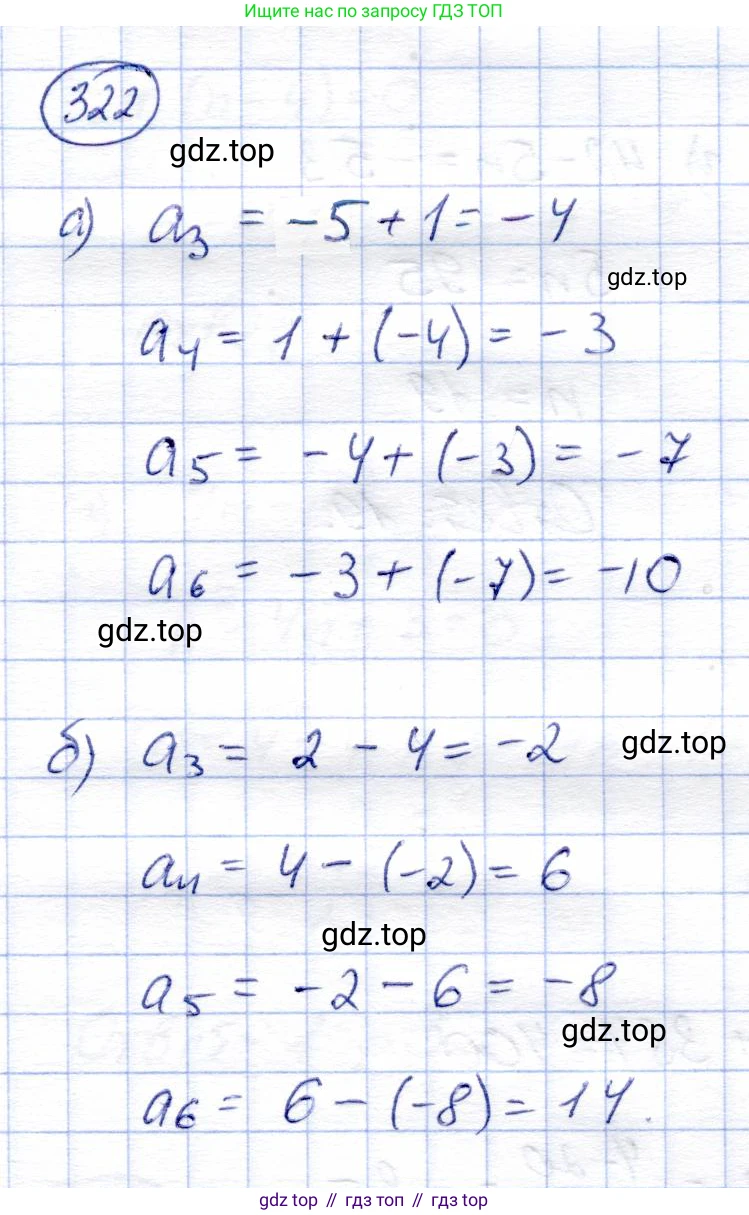 Ищите нас по запросу ГДЗ ТОП
322
gdz.top
а) a₃ = -5 + 1 = -4
gdz.top
a₄ = 1 + (-4) = -3
a₅ = -4 + (-3) = -7
a₆ = -3 + (-7) = -10
gdz.top
б) a₃ = 2 - 4 = -2
gdz.top
a₄ = 4 - (-2) = 6
gdz.top
a₅ = -2 - 6 = -8
gdz.top
a₆ = 6 - (-8) = 14.
gdz top // гдз топ // gdz top